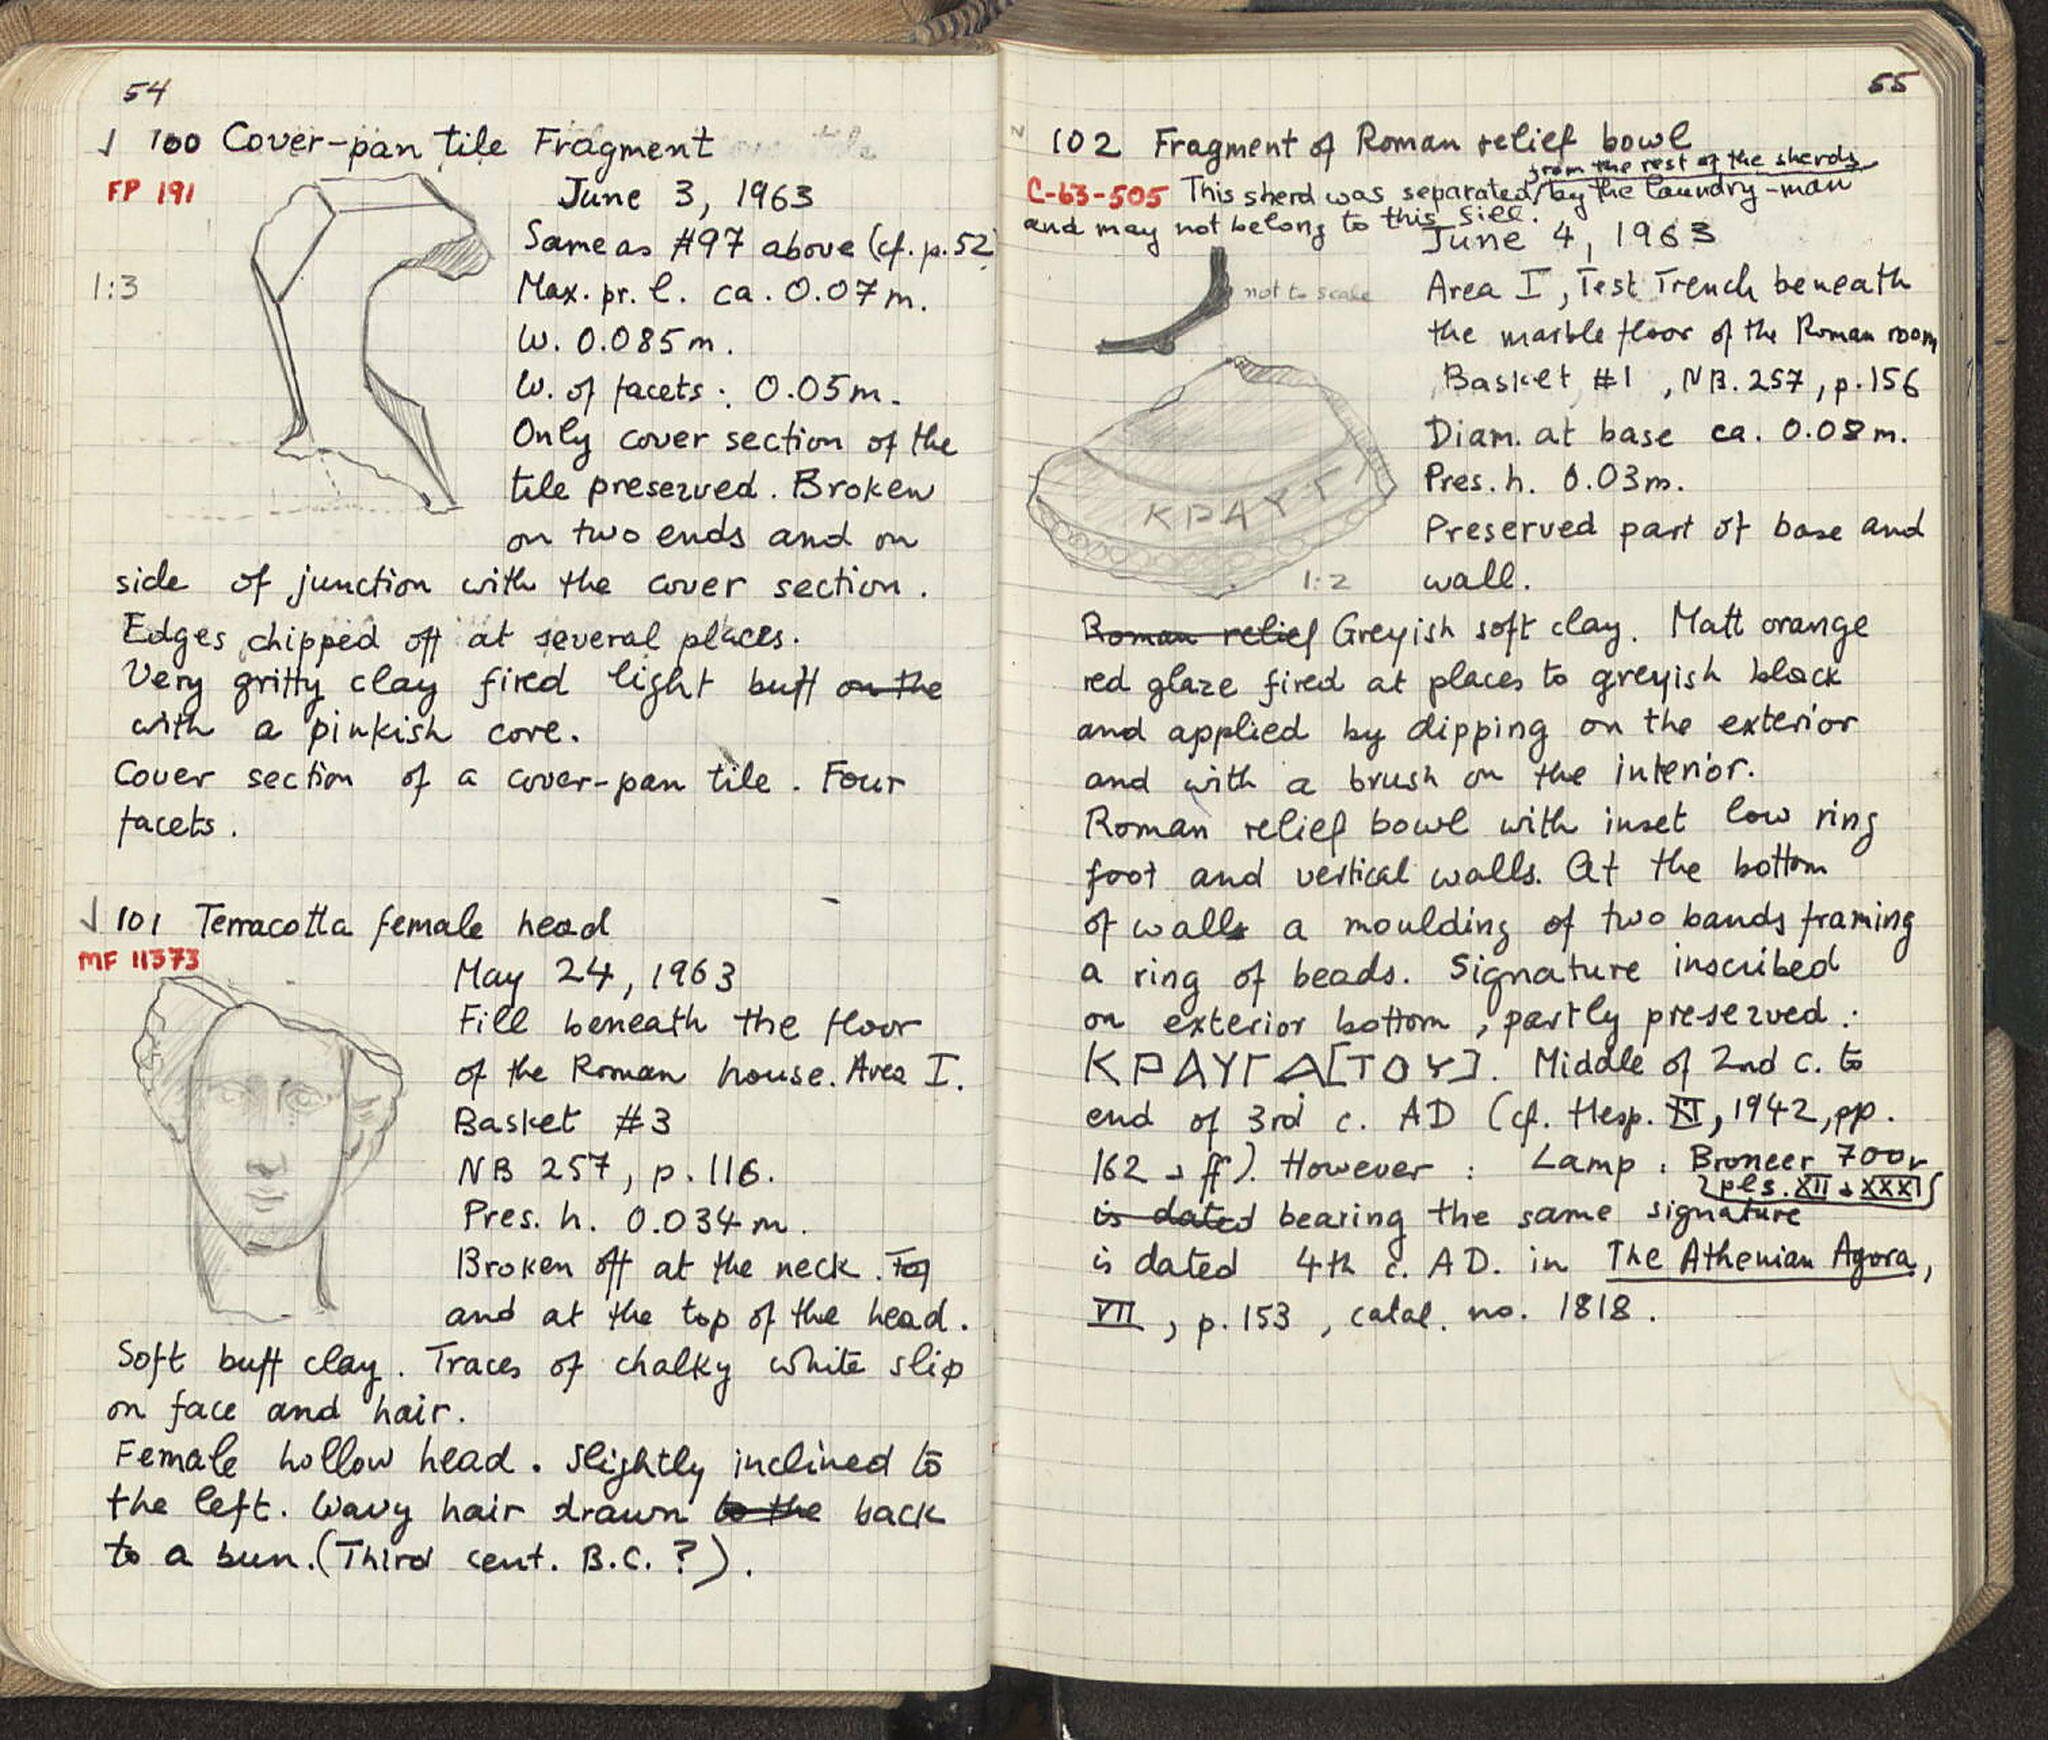 54
100 Cover-pan tile Fragment
FP 191
June 3, 1963
Same as #97 above (cf. p. 52)
1:3
Max. pr. l. ca. 0.07 m.
W. 0.085 m.
W. of facets: 0.05 m.
Only cover section of the
tile preserved. Broken
on two ends and on
side of junction with the cover section.
Edges chipped off at several places.
Very gritty clay fired light buff on the
with a pinkish core.
Cover section of a cover-pan tile. Four
facets.
101 Terracotta female head
MF 11373
May 24, 1963
Fill beneath the floor
of the Roman house. Area I.
Basket #3
NB 257, p. 116.
Pres. h. 0.034 m.
Broken off at the neck.
and at the top of the head.
Soft buff clay. Traces of chalky white slip
on face and hair.
Female hollow head. Slightly inclined to
the left. Wavy hair drawn to the back
to a bun. (Third cent. B.C.?).
55
102 Fragment of Roman relief bowl
from the rest of the sherds
C-63-505 This sherd was separated by the laundry-man
and may not belong to this fill.
June 4, 1963
not to scale
Area I, Test Trench beneath
the marble floor of the Roman room
Basket #1, NB. 257, p. 156
Diam. at base ca. 0.08 m.
Pres. h. 0.03 m.
ΚΡΑΥΓ
Preserved part of base and
1:2
wall.
Roman relief Greyish soft clay. Matt orange
red glaze fired at places to greyish black
and applied by dipping on the exterior
and with a brush on the interior.
Roman relief bowl with inset low ring
foot and vertical walls. At the bottom
of walls a moulding of two bands framing
a ring of beads. Signature inscribed
on exterior bottom, partly preserved:
ΚΡΑΥΓΑ̣[ΤΟΥ]. Middle of 2nd c. to
end of 3rd c. AD (cf. Hesp. XI, 1942, pp.
162 ff). However: Lamp: Broneer 700
pls. XII & XXXI
is dated bearing the same signature
is dated 4th c. AD. in The Athenian Agora,
VII, p. 153, catal. no. 1818.